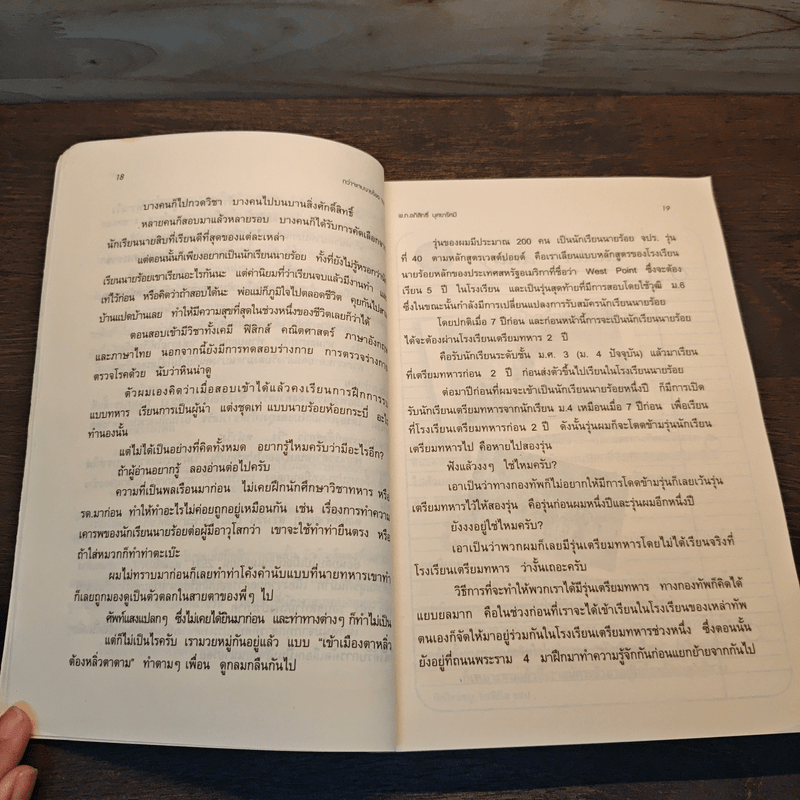 18
บางคนก็ไปกวดวิชา บางคนไปบนบานสิ่งศักดิ์สิทธิ์
หลายคนก็สอบมาแล้วหลายรอบ บางคนก็ได้รับการคัดเลือกจาก
นักเรียนนายสิบที่เรียนดีที่สุดของแต่ละเหล่า
แต่ตอนนั้นก็เพียงอยากเป็นนักเรียนนายร้อย ทั้งที่ยังไม่รู้หรอกว่า
เรียนนายร้อยเขาเรียนอะไรกันนะ แต่ค่านิยมที่ว่าเรียนจบแล้วมีงานทำ
เท่ไว้ก่อน หรือคิดว่าถ้าสอบได้นะ พ่อแม่ก็ภูมิใจไปตลอดชีวิต คุยกันไป
บ้านแปดบ้านเลย ทำให้มีความสุขที่สุดในช่วงหนึ่งของชีวิตเลยก็ว่าได้
ตอนสอบเข้ามีวิชาทั้งเคมี ฟิสิกส์ คณิตศาสตร์ ภาษาอังกฤษ
และภาษาไทย นอกจากนี้ยังมีการทดสอบร่างกาย การตรวจร่างกาย
ตรวจโรคด้วย นับว่าหินน่าดู
ตัวผมเองคิดว่าเมื่อสอบเข้าได้แล้วคงเรียนการฝึกการรบ
แบบทหาร เรียนการเป็นผู้นำ แต่งชุดเท่ แบบนายร้อยห้อยกระบี่
ทำนองนั้น
แต่ไม่ได้เป็นอย่างที่คิดทั้งหมด อยากรู้ไหมครับว่ามีอะไรอีก?
ถ้าผู้อ่านอยากรู้ ลองอ่านต่อไปครับ
ความที่เป็นพลเรือนมาก่อน ไม่เคยฝึกนักศึกษาวิชาทหาร หรือ
รด.มาก่อน ทำให้ทำอะไรไม่ค่อยถูกอยู่เหมือนกัน เช่น เรื่องการทำความ
เคารพของนักเรียนนายร้อยต่อผู้มีอาวุโสกว่า เขาจะใช้ทำท่ายืนตรง หรือ
ถ้าใส่หมวกก็ทำท่าตะเบ๊ะ
ผมไม่ทราบมาก่อนก็เลยทำท่าโค้งคำนับแบบที่นายทหารเขาทำ
ก็เลยถูกมองดูเป็นตัวตลกในสายตาของพี่ๆ ไป
ศัพท์แสงแปลกๆ ซึ่งไม่เคยได้ยินมาก่อน และท่าทางต่างๆ ก็ทำไม่เป็น
แต่ก็ไม่เป็นไรครับ เรามวยหมู่กันอยู่แล้ว แบบ “เข้าเมืองตาหลิ่ว
ต้องหลิ่วตาตาม” ทำตามๆ เพื่อน ดูกลมกลืนกันไป
19
รุ่นของผมมีประมาณ 200 คน เป็นนักเรียนนายร้อย จปร. รุ่น
ที่ 40 ตามหลักสูตรเวสต์ปอยต์ คือเราเลียนแบบหลักสูตรของโรงเรียน
นายร้อยหลักของประเทศสหรัฐอเมริกาที่ชื่อว่า West Point ซึ่งจะต้อง
เรียน 5 ปี ในโรงเรียน และเป็นรุ่นสุดท้ายที่มีการสอบโดยใช้วุฒิ ม.6
ซึ่งในขณะนั้นกำลังมีการเปลี่ยนแปลงการรับสมัครนักเรียนนายร้อย
โดยปกติเมื่อ 7 ปีก่อน และก่อนหน้านี้การจะเป็นนักเรียนนายร้อย
ได้จะต้องผ่านโรงเรียนเตรียมทหาร 2 ปี
คือรับนักเรียนระดับชั้น ม.ศ. 3 (ม. 4 ปัจจุบัน) แล้วมาเรียน
ที่เตรียมทหารก่อน 2 ปี ก่อนส่งตัวขึ้นไปเรียนในโรงเรียนนายร้อย
ต่อมาปีก่อนที่ผมจะเข้าเป็นนักเรียนนายร้อยหนึ่งปี ก็มีการเปิด
รับนักเรียนเตรียมทหารจากนักเรียน ม.4 เหมือนเมื่อ 7 ปีก่อน เพื่อเรียน
ที่โรงเรียนเตรียมทหารก่อน 2 ปี ดังนั้นรุ่นผมก็จะโดดข้ามรุ่นนักเรียน
เตรียมทหารไป คือหายไปสองรุ่น
ฟังแล้วงงๆ ใช่ไหมครับ?
เอาเป็นว่าทางกองทัพก็ไม่อยากให้มีการโดดข้ามรุ่นก็เลยเว้นรุ่น
เตรียมทหารไว้ให้สองรุ่น คือรุ่นก่อนผมหนึ่งปีและรุ่นผมอีกหนึ่งปี
ยังงงอยู่ใช่ไหมครับ?
เอาเป็นว่าพวกผมก็เลยมีรุ่นเตรียมทหารโดยไม่ได้เรียนจริงที่
โรงเรียนเตรียมทหาร ว่างั้นเถอะครับ
วิธีการที่จะทำให้พวกเราได้มีรุ่นเตรียมทหาร ทางกองทัพก็คิดได้
แยบยลมาก คือในช่วงก่อนที่เราจะได้เข้าเรียนในโรงเรียนของเหล่าทัพ
ตนเองก็จัดให้มาอยู่ร่วมกันในโรงเรียนเตรียมทหารช่วงหนึ่ง ซึ่งตอนนั้น
ยังอยู่ที่ถนนพระราม 4 มาฝึกมาทำความรู้จักกันก่อนแยกย้ายจากกันไป